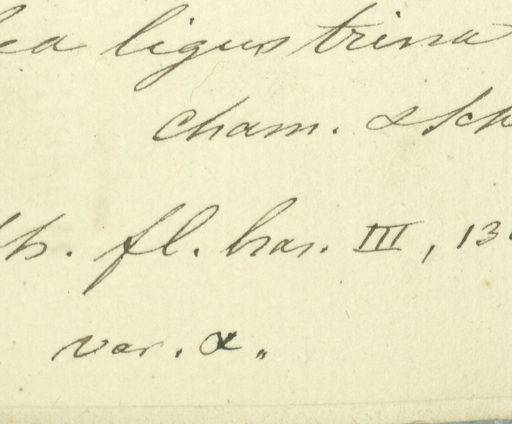 ea ligustrina
Cham. & Sch
h. fl. bras. III, 13
var. α.